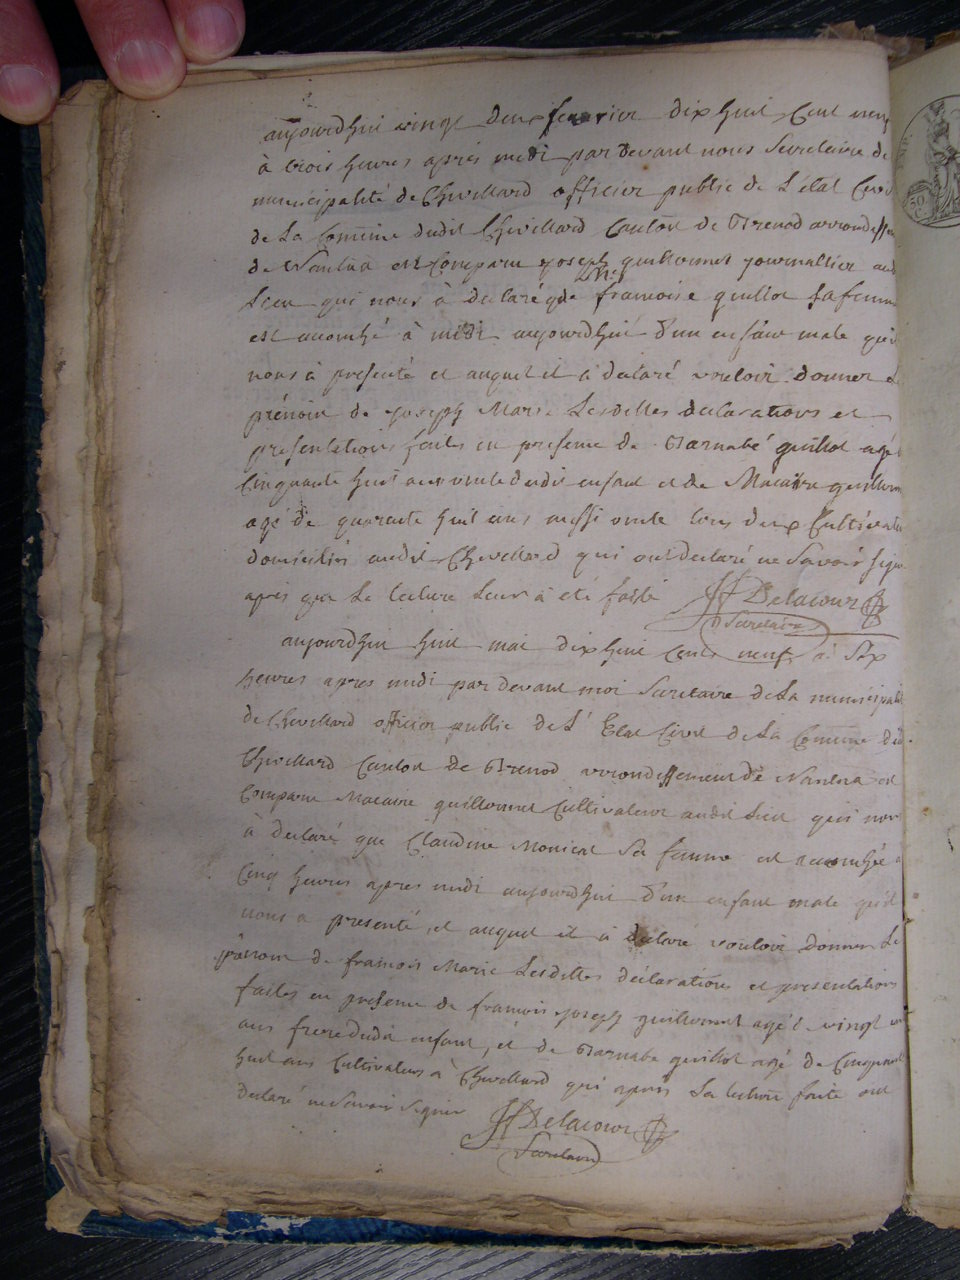 aujourdhui vingt deux fevrier dix huit Cent neuf
à trois heures après midi par devant nous Secretaire de
municipalité de Chevillard officier public de L'état Civi
de La Comune dudit Chevillard Canton de Brenod arrondissem
de Nantua est Comparu joseph guillermet journallier aud
Lieu qui nous à declaré qde francoise guillot Safemme
est acouchée à midi aujourdhui d'un enfant male qu'il
nous à presenté et auquel il à declaré vouloir donner le
prénoin de joseph Marie Lesdittes declarations et
presentations faites en presence de Barnabé guillot agé
Cinquante huit ans oncle dudit enfant et de Macaire guillerm
agé de quarante huit ans aussi oncle tous deux Cultivateu
domiciliés audit Chevillard qui ont declaré ne Savoir signe
après que La Lecture Leur à été faite JfDelacour
Secretaire
aujourdhui huit mai dix huit Cents neuf à Six
heures apres midi par devant moi Secretaire de La municipali
de Chevillard officier public de L' Etat Civil de La Comune dud
Chevillard Canton de Brenod arrondissement de Nantua est
Comparu Macaire guillermet Cultivateur audit Lieu qui nous
à declaré que Claudine Monical Sa femme est acouchée a
Cinq heures apres midi aujourdhui d'un enfant male qu'il
nous a presenté, et auquel il à declaré vouloir donner Le
prénom de francois Marie Lesdittes déclarations et presentations
faites en presence de francois joseph guillermet agé de vingt un
ans frere dudit enfant, et de Barnabe guillot agé de Cinquante
huit ans Cultivateurs à Chevillard qui après La lecture faite ont
declaré ne Savoir Signer JfDelacour
Secretaire
50
C.